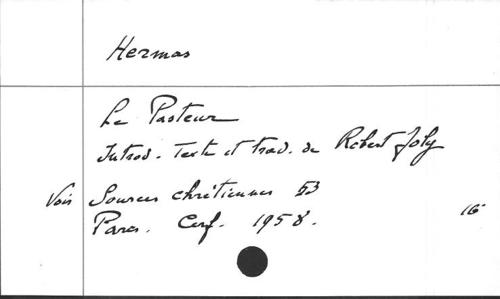 Hermas
Le Pasteur
Introd. Texte et trad. de Robert Joly
Voir Sources chrétiennes 53
Paris. Cerf. 1958.
16